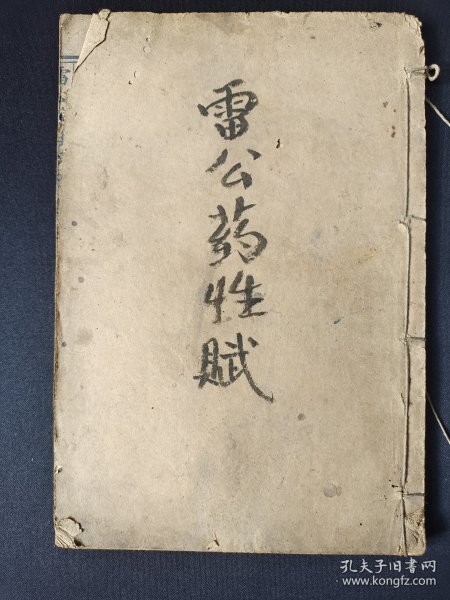 雷公药性赋
孔夫子旧书网
www.kongfz.com